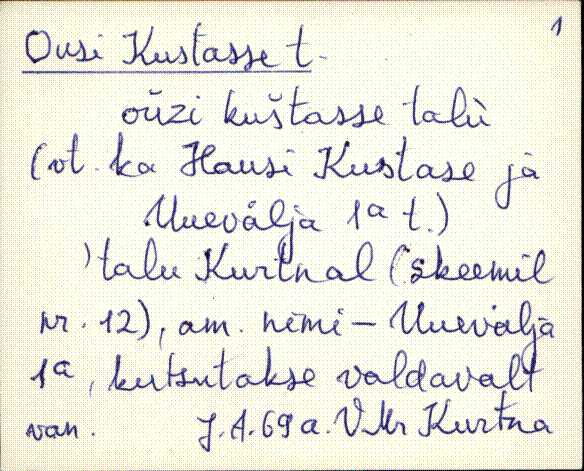 1
Ousi Kustasse t.
oŭzi kuštasse talù
(vt. ka Hansi Kustase jà
Uueválja 1ª t.)
talu Kurtnal (skeemil
nr. 12), am. nimi – Uuevälja
1ª, kutsutakse valdavalt
van. J.A. 69 a. VMr Kurtna